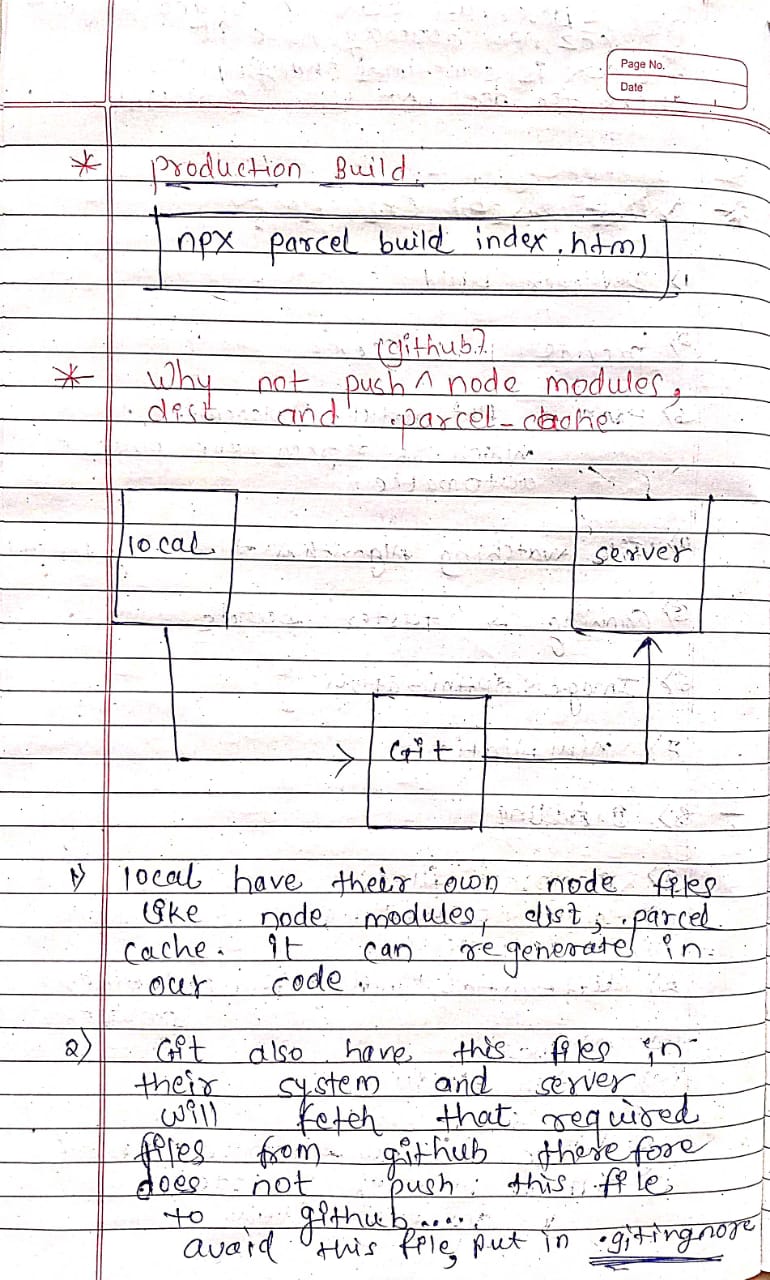 Page No.
Date
* production Build.
npx parcel build index.html
(github?)
* Why not push ^ node modules,
dist and .parcel-cache
local
server
Git
1) local have their own node files
like node modules, dist, .parcel
cache. it can regenerated in
our code.
2) Git also have this files in
their system and server
will fetch that required
files from github therefore
does not push this file
to github.....
avoid this file, put in .gitingnore